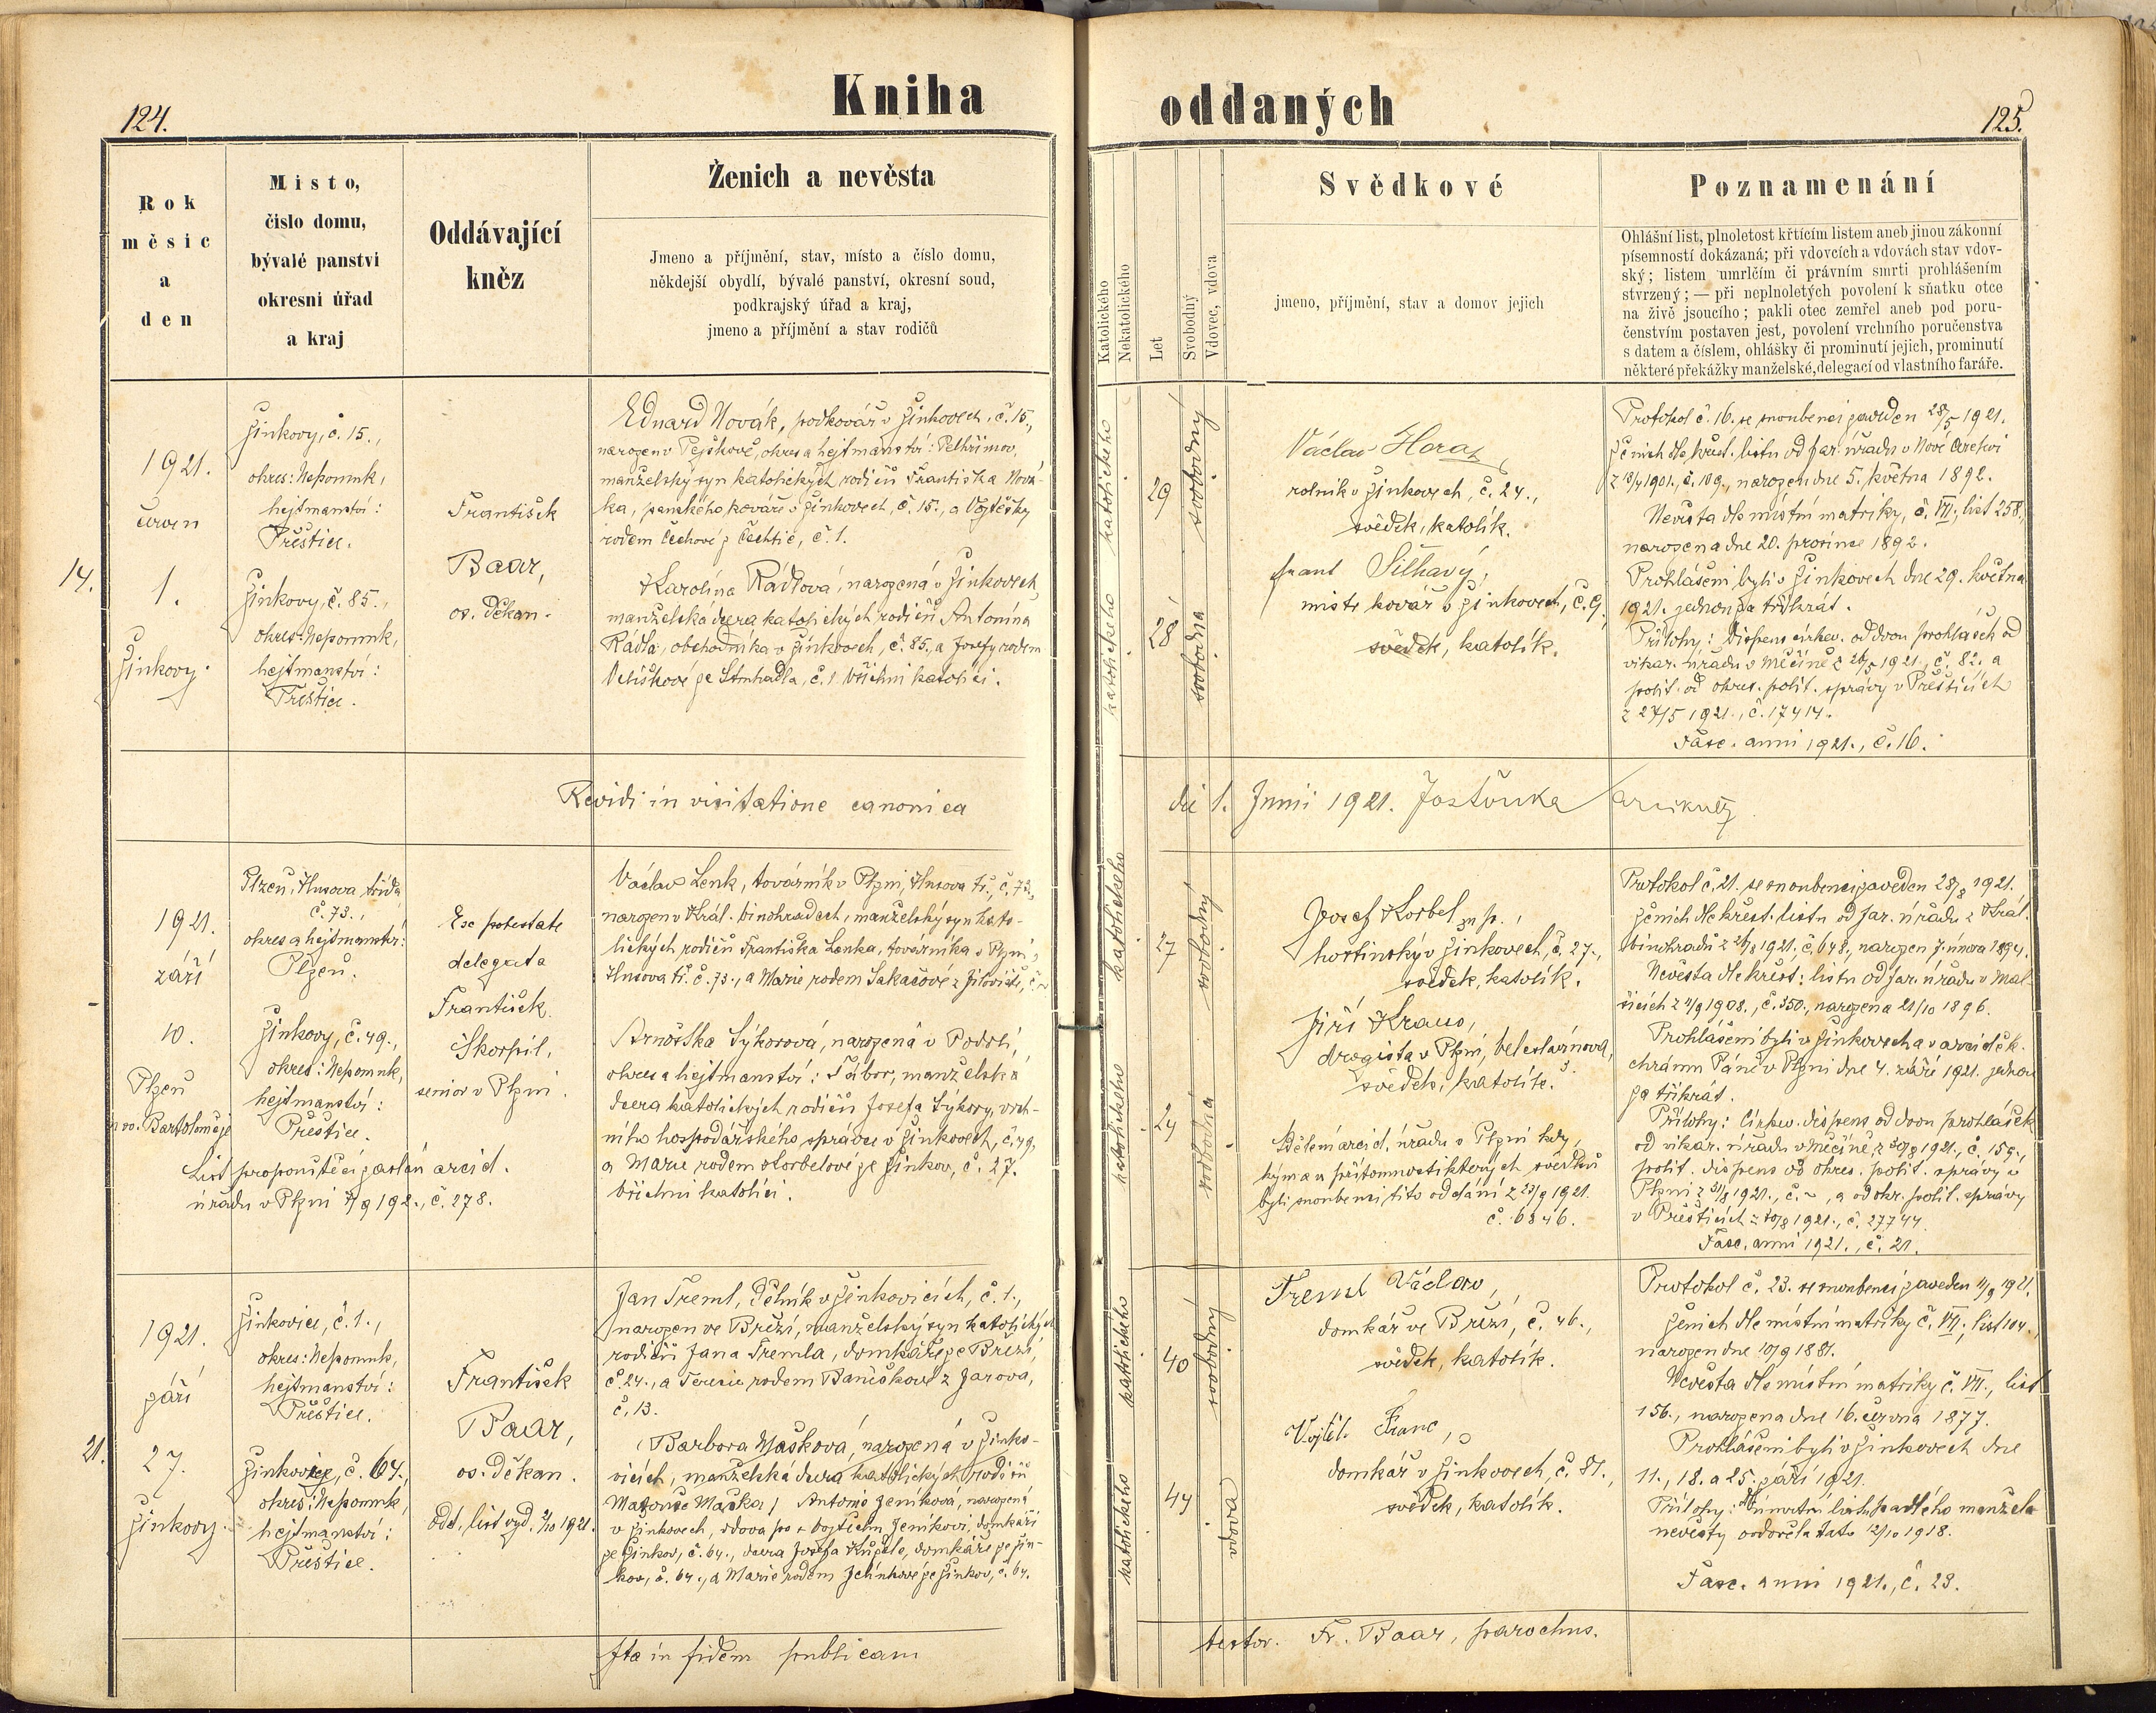 124.
Kniha
Rok
měsíc
a
den
Místo,
číslo domu,
bývalé panství
okresní úřad
a kraj
Oddávající
kněz
Ženich a nevěsta
Jmeno a příjmění, stav, místo a číslo domu,
někdejší obydlí, bývalé panství, okresní soud,
podkrajský úřad a kraj,
jmeno a příjmění a stav rodičů
14.
1921.
červen
1.
Žinkovy.
Žinkovy, č. 15.,
okres: Nepomuk,
hejtmanství:
Přeštice.
Žinkovy, č. 85.,
okres: Nepomuk,
hejtmanství:
Přeštice.
František
Baar,
os. děkan.
Eduard Novák, podkovář v Žinkovech, č. 15.,
narozen v Pejškově, okres a hejtmanství: Pelhřimov,
manželský syn katolických rodičů Františka Nová-
ka, panského kováře v Žinkovech, č. 15., a Vojtěšky
rodem Čechové z Čechtic, č. 1.
Karolína Rádlová, narozená v Žinkovech,
manželská dcera katolických rodičů Antonína
Rádla, obchodníka v Žinkovech, č. 85., a Josefy rodem
Velíškové ze Struhadla, č. 1. Všichni katolíci.
Revidi in visitatione canonica
1921.
září
10.
Plzeň
Plzeň, Husova třída
č. 73.,
okres a hejtmanství:
Plzeň.
Žinkovy, č. 49.,
okres: Nepomuk,
hejtmanství:
Přeštice.
Ex potestate
delegata
František
Škorpil,
senior v Plzni.
Václav Lenk, továrník v Plzni, Husova tř., č. 73.,
narozen v Král. Vinohradech, manželský syn kato-
lických rodičů Františka Lenka, továrníka v Plzni,
Husova tř. č. 73., a Marie rodem Sakařové z
Arnoštka Sýkorová, narozená v
okres a hejtmanství: Tábor, manželská
dcera katolických rodičů Josefa Sýkory, vrch-
ního hospodářského správce v Žinkovech, č. 49,
a Marie rodem Korbelové ze Žinkov, č. 27.
Všichni katolíci.
sv. Bartoloměje
List propouštěcí zaslán arcid.
úřadu v Plzni č. 278.
21.
1921.
září
27.
Žinkovy.
Žinkovice, č. 1.,
okres: Nepomuk,
hejtmanství:
Přeštice.
Žinkovice, č. 64.,
okres: Nepomuk,
hejtmanství:
Přeštice.
František
Baar,
os. děkan.
odd. list vyd. 2/10 1921.
Jan Treml, dělník v Žinkovicích, č. 1.,
narozen ve Březí, manželský syn katolických
rodičů Jana Tremla, domkáře ze Březí,
č. 24., a Terezie rodem Baníškové z Jarova,
č. 13.
(Barbora Mašková, narozená v Žinko-
vicích, manželská dcera katolických rodičů
Matouše Maška) Antonie Jeníková, narozená
v Žinkovech, vdova po + Vojtěchu Jeníkovi, domkáři
ze Žinkov, č. 64., dcera Josefa Kuželе, domkáře ze Žin-
kov, č. 64., a Marie rodem Jelínkové ze Žinkov, č. 64.
Ita in fidem publicam
oddaných
125.
Katolického
Nekatolického
Let
Svobodný
Vdovec, vdova
Svědkové
jmeno, příjmění, stav a domov jejich
Poznamenání
Ohlášní list, plnoletost křtícím listem aneb jinou zákonní
písemností dokázaná; při vdovcích a vdovách stav vdov-
ský; listem umrlčím či právním smrti prohlášením
stvrzený; — při neplnoletých povolení k sňatku otce
na živě jsoucího; pakli otec zemřel aneb pod poru-
čenstvím postaven jest, povolení vrchního poručenstva
s datem a číslem, ohlášky či prominutí jejich, prominutí
některé překážky manželské, delegací od vlastního faráře.
katolického
29
svobodný
katolického
28
svobodná
Václav Hora
rolník v Žinkovech, č. 24.,
svědek, katolík.
Frant Šilhavý,
mistr kovář v Žinkovech, č. 9,
svědek, katolík.
Protokol č. 16. se snoubenci zaveden 28/5 1921.
Ženich dle křest. listu od far. úřadu v Nové Cerekvi
z 1901., č. 109., narozen dne 5. května 1892.
Nevěsta dle místní matriky, č. VII., list 258.,
narozena dne 20. prosince 1892.
Prohlášeni byli v Žinkovech dne 29. května
1921. jednou za třikrát.
Přílohy: Dispens církev. od dvou prohlášek od
vikar. úřadu v Měčíně z 26/5 1921., č. 82. a
polit. od okres. polit. správy v Přešticích
z 27/5 1921., č. 17414.
Fasc. anni 1921., č. 16.
die 1. Junii 1921. Jošťurka
katolického
27
svobodný
katolického
24
svobodná
Josef Korbel mp.,
hostinský v Žinkovech, č. 27.,
svědek, katolík.
Jiří Kraus,
drogista v Plzni, Veleslavínova,
svědek, katolík.
Sdělení arcid. úřadu v Plzni kdy,
kým a v přítomnosti kterých svědků
byli snoubenci tito oddáni z 23/9 1921.
č. 6846.
Protokol č. 21. se snoubenci zaveden 28/8 1921.
Ženich dle křest. listu od far. úřadu z Král.
Vinohradů z 26/8 1921., č. 648., narozen 7. února 1894.
Nevěsta dle křest. listu od far. úřadu v Mal-
šicích z 4/9 1908., č. 350., narozena 21/10 1896.
Prohlášeni byli v Žinkovech a v arciděk.
chrámu Páně v Plzni dne 4. září 1921. jednou
za třikrát.
Přílohy: Církev. dispens od dvou prohlášek
od vikar. úřadu v Měčíně z 30/8 1921., č. 155.,
polit. dispens od okres. polit. správy v
Plzni z 31/8 1921., č. ~, a od okr. polit. správy
v Přešticích z 30/8 1921., č. 27744.
Fasc. anni 1921., č. 21.
katolického
40
svobodný
katolického
44
vdova
Treml Václav,
domkář ve Březí, č. 46.,
svědek, katolík.
Vojtěch Franc,
domkář v Žinkovech, č. 81.,
svědek, katolík.
Protokol č. 23. se snoubenci zaveden 11/9 1921.
Ženich dle místní matriky č. VII., list 104.,
narozen dne 10/9 1881.
Nevěsta dle místní matriky č. VII., list
156., narozena dne 16. června 1877.
Prohlášeni byli v Žinkovech dne
11., 18. a 25. září 1921.
Přílohy: Úmrtní list padlého manžela
nevěsty ovdověla tato 12/10 1918.
Fasc. anni 1921., č. 23.
testor. Fr. Baar, parochus.